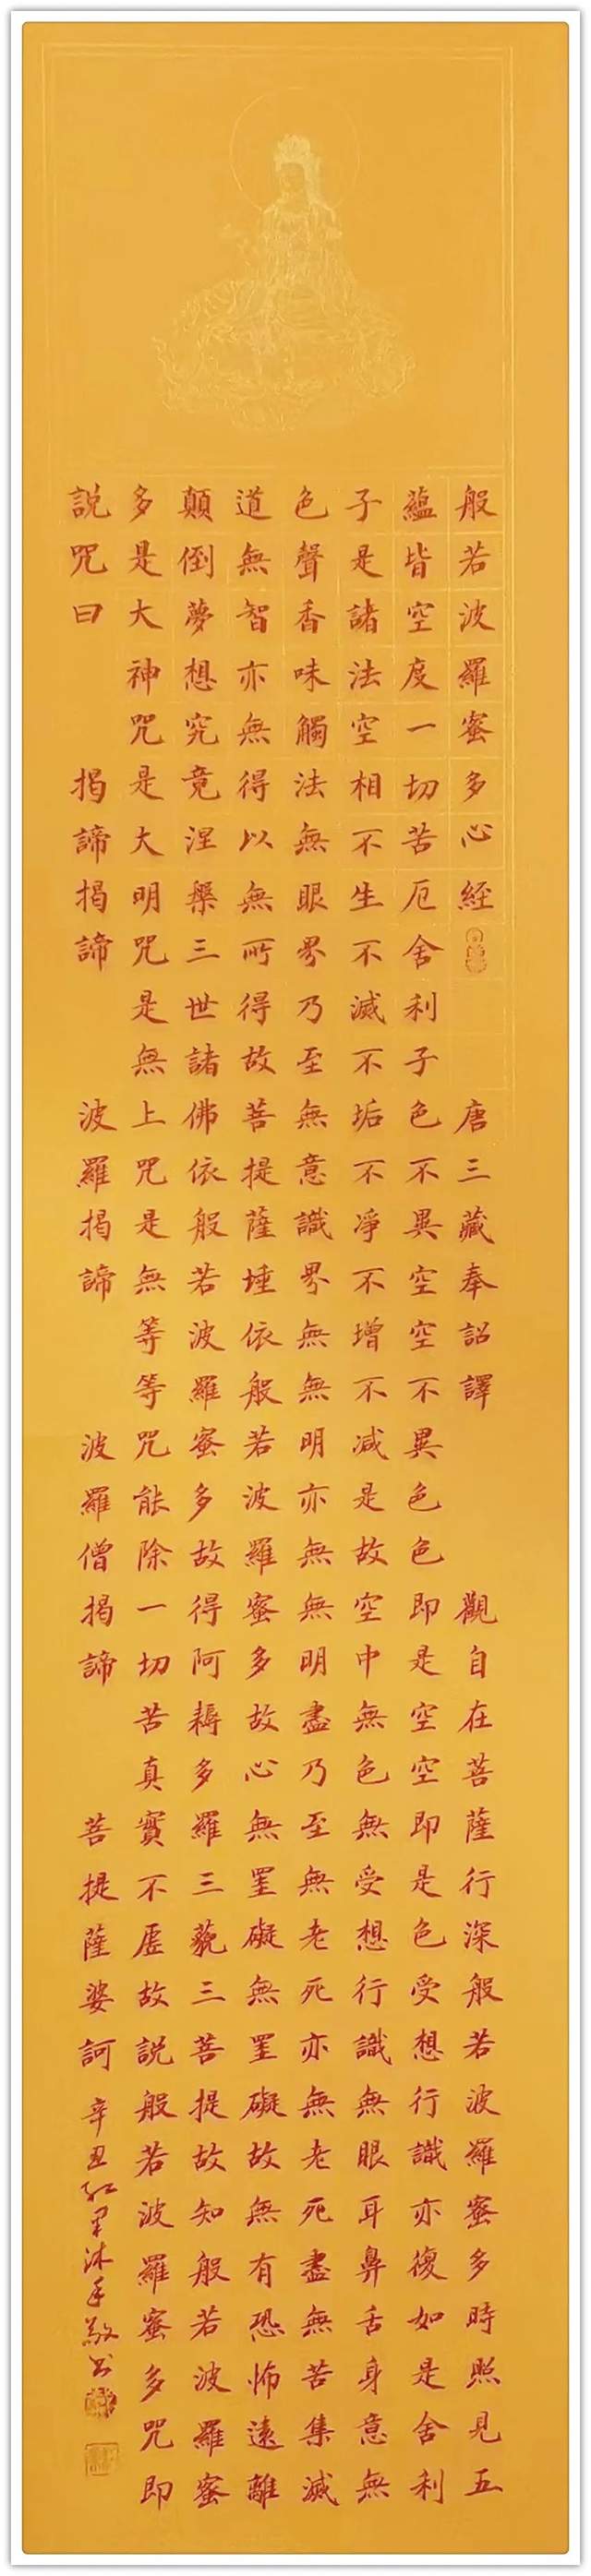 般若波羅蜜多心経 唐三藏奉詔譯 觀自在菩薩行深般若波羅蜜多時照見五
蘊皆空度一切苦厄舍利子色不異空空不異色色即是空空即是色受想行識亦復如是舍利
子是諸法空相不生不滅不垢不凈不增不减是故空中無色無受想行識無眼耳鼻舌身意無
色聲香味觸法無眼界乃至無意識界無無明亦無無明盡乃至無老死亦無老死盡無苦集滅
道無智亦無得以無所得故菩提薩埵依般若波羅蜜多故心無罣礙無罣礙故無有恐怖遠離
顛倒夢想究竟涅槃三世諸佛依般若波羅蜜多故得阿耨多羅三藐三菩提故知般若波羅蜜
多是大神咒是大明咒是無上咒是無等等咒能除一切苦真實不虛故説般若波羅蜜多咒即
説咒曰 揭諦揭諦 波羅揭諦 波羅僧揭諦 菩提薩婆訶 辛丑 沐手敬書